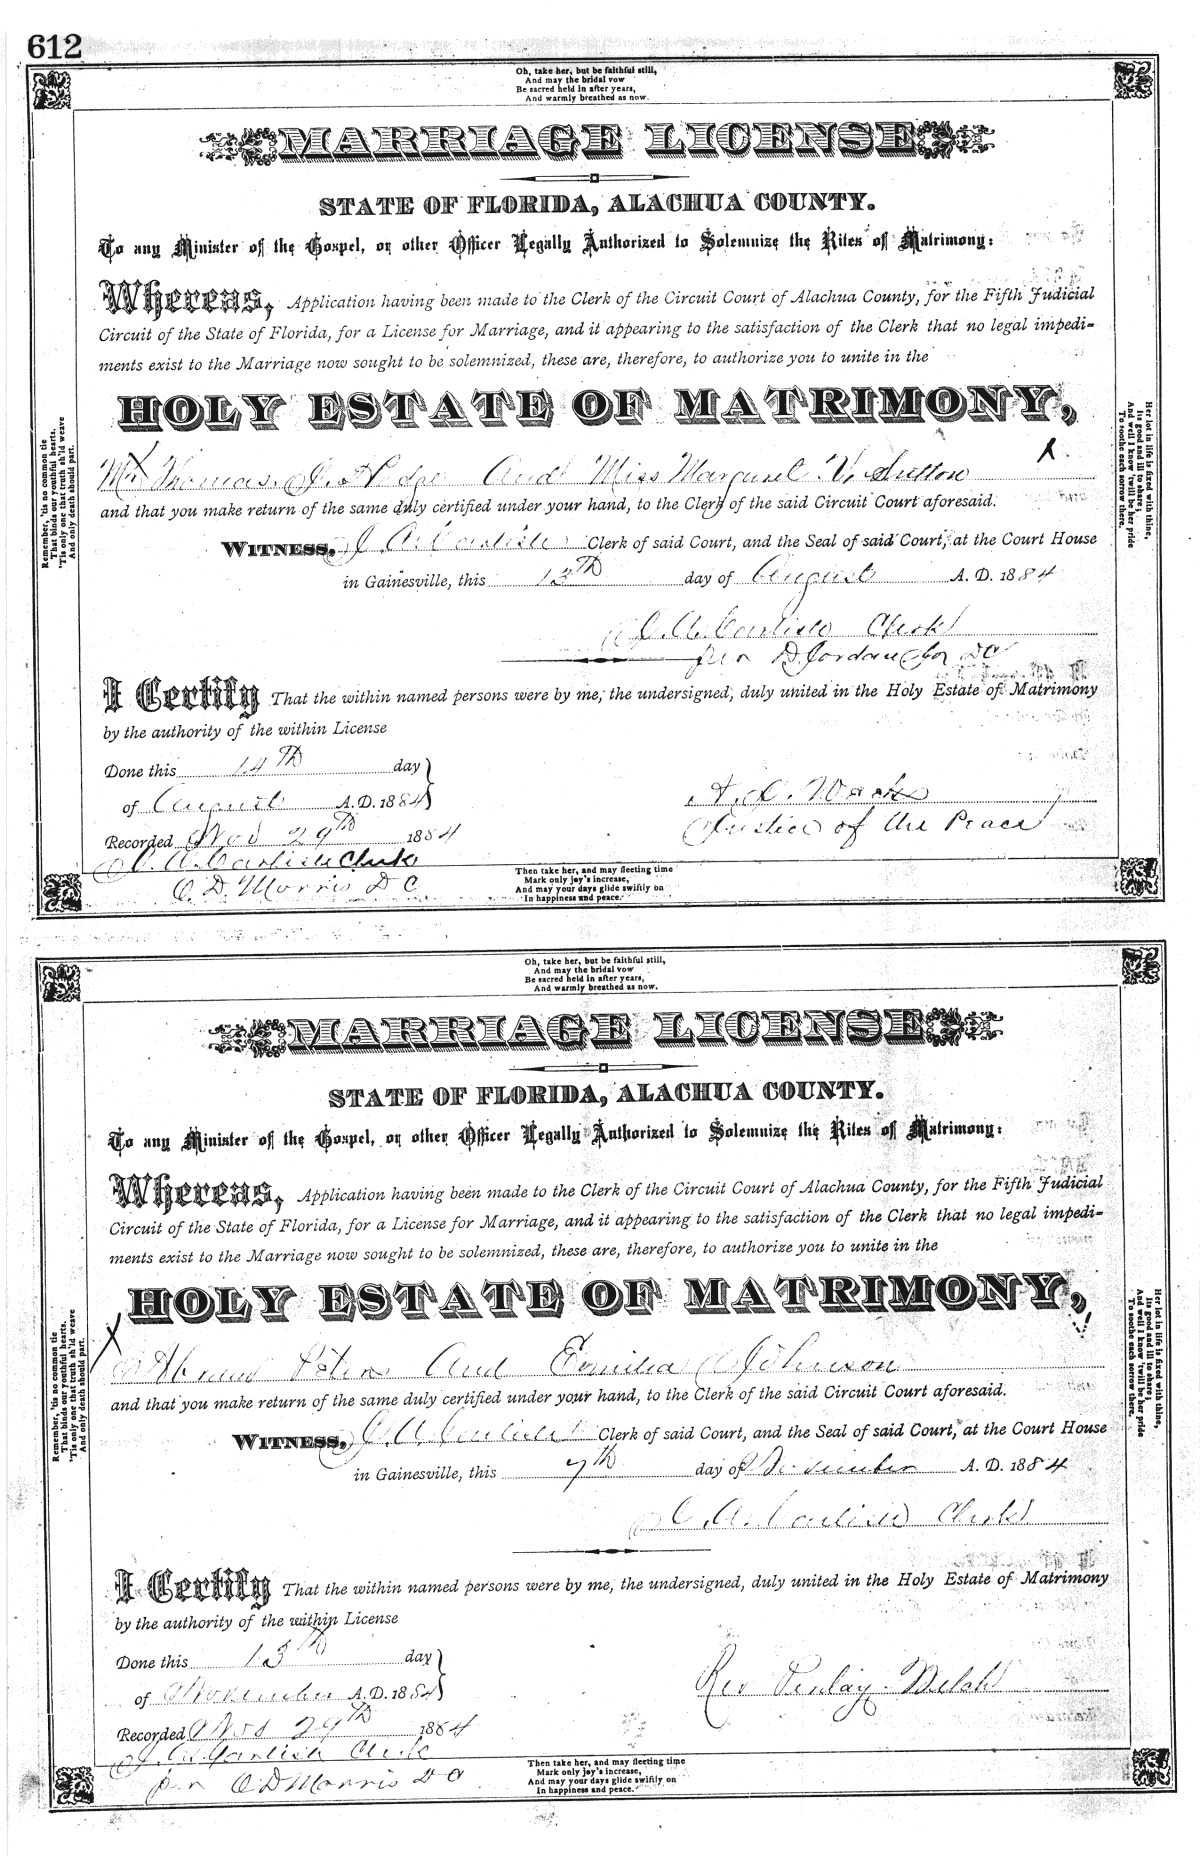 612
Oh, take her, but be faithful still,
And may the bridal vow
Be sacred held in after years,
And warmly breathed as now.
MARRIAGE LICENSE
STATE OF FLORIDA, ALACHUA COUNTY.
To any Minister of the Gospel, or other Officer Legally Authorized to Solemnize the Rites of Matrimony:
Whereas, Application having been made to the Clerk of the Circuit Court of Alachua County, for the Fifth Judicial
Circuit of the State of Florida, for a License for Marriage, and it appearing to the satisfaction of the Clerk that no legal impedi-
ments exist to the Marriage now sought to be solemnized, these are, therefore, to authorize you to unite in the
HOLY ESTATE OF MATRIMONY,
Mr Thomas J. Hodge And Miss Margaret V. Sutton
and that you make return of the same duly certified under your hand, to the Clerk of the said Circuit Court aforesaid.
WITNESS, J. A. Carlisle Clerk of said Court, and the Seal of said Court, at the Court House
in Gainesville, this 13th day of August A. D. 1884
J. A. Carlisle Clerk
per D. Jordan for DC
I Certify That the within named persons were by me, the undersigned, duly united in the Holy Estate of Matrimony
by the authority of the within License
Done this 14th day
of August A. D. 1884
Recorded Nov 29th 1884
J. A. Carlisle Clerk
O. D. Morris D C
Justice of the Peace
Then take her, and may fleeting time
Mark only joy's increase,
And may your days glide swiftly on
In happiness and peace.
Remember, 'tis no common tie
That binds our youthful hearts,
'Tis only one that truth sh'ld weave
And only death should part.
Her lot in life is fixed with thine,
Its good and ill to share;
And well I know 'twill be her pride
To soothe each sorrow there.
Oh, take her, but be faithful still,
And may the bridal vow
Be sacred held in after years,
And warmly breathed as now.
MARRIAGE LICENSE
STATE OF FLORIDA, ALACHUA COUNTY.
To any Minister of the Gospel, or other Officer Legally Authorized to Solemnize the Rites of Matrimony:
Whereas, Application having been made to the Clerk of the Circuit Court of Alachua County, for the Fifth Judicial
Circuit of the State of Florida, for a License for Marriage, and it appearing to the satisfaction of the Clerk that no legal impedi-
ments exist to the Marriage now sought to be solemnized, these are, therefore, to authorize you to unite in the
HOLY ESTATE OF MATRIMONY,
And Emilia Johnson
and that you make return of the same duly certified under your hand, to the Clerk of the said Circuit Court aforesaid.
WITNESS, J. A. Carlisle Clerk of said Court, and the Seal of said Court, at the Court House
in Gainesville, this 7th day of November A. D. 1884
J. A. Carlisle Clerk
I Certify That the within named persons were by me, the undersigned, duly united in the Holy Estate of Matrimony
by the authority of the within License
Done this 13th day
of November A. D. 1884
Recorded Nov 29th 1884
J. A. Carlisle Clerk
per O D Morris D C
Rev
Then take her, and may fleeting time
Mark only joy's increase,
And may your days glide swiftly on
In happiness and peace.
Remember, 'tis no common tie
That binds our youthful hearts.
'Tis only one that truth sh'ld weave
And only death should part.
Her lot in life is fixed with thine,
Its good and ill to share;
And well I know 'twill be her pride
To soothe each sorrow there.